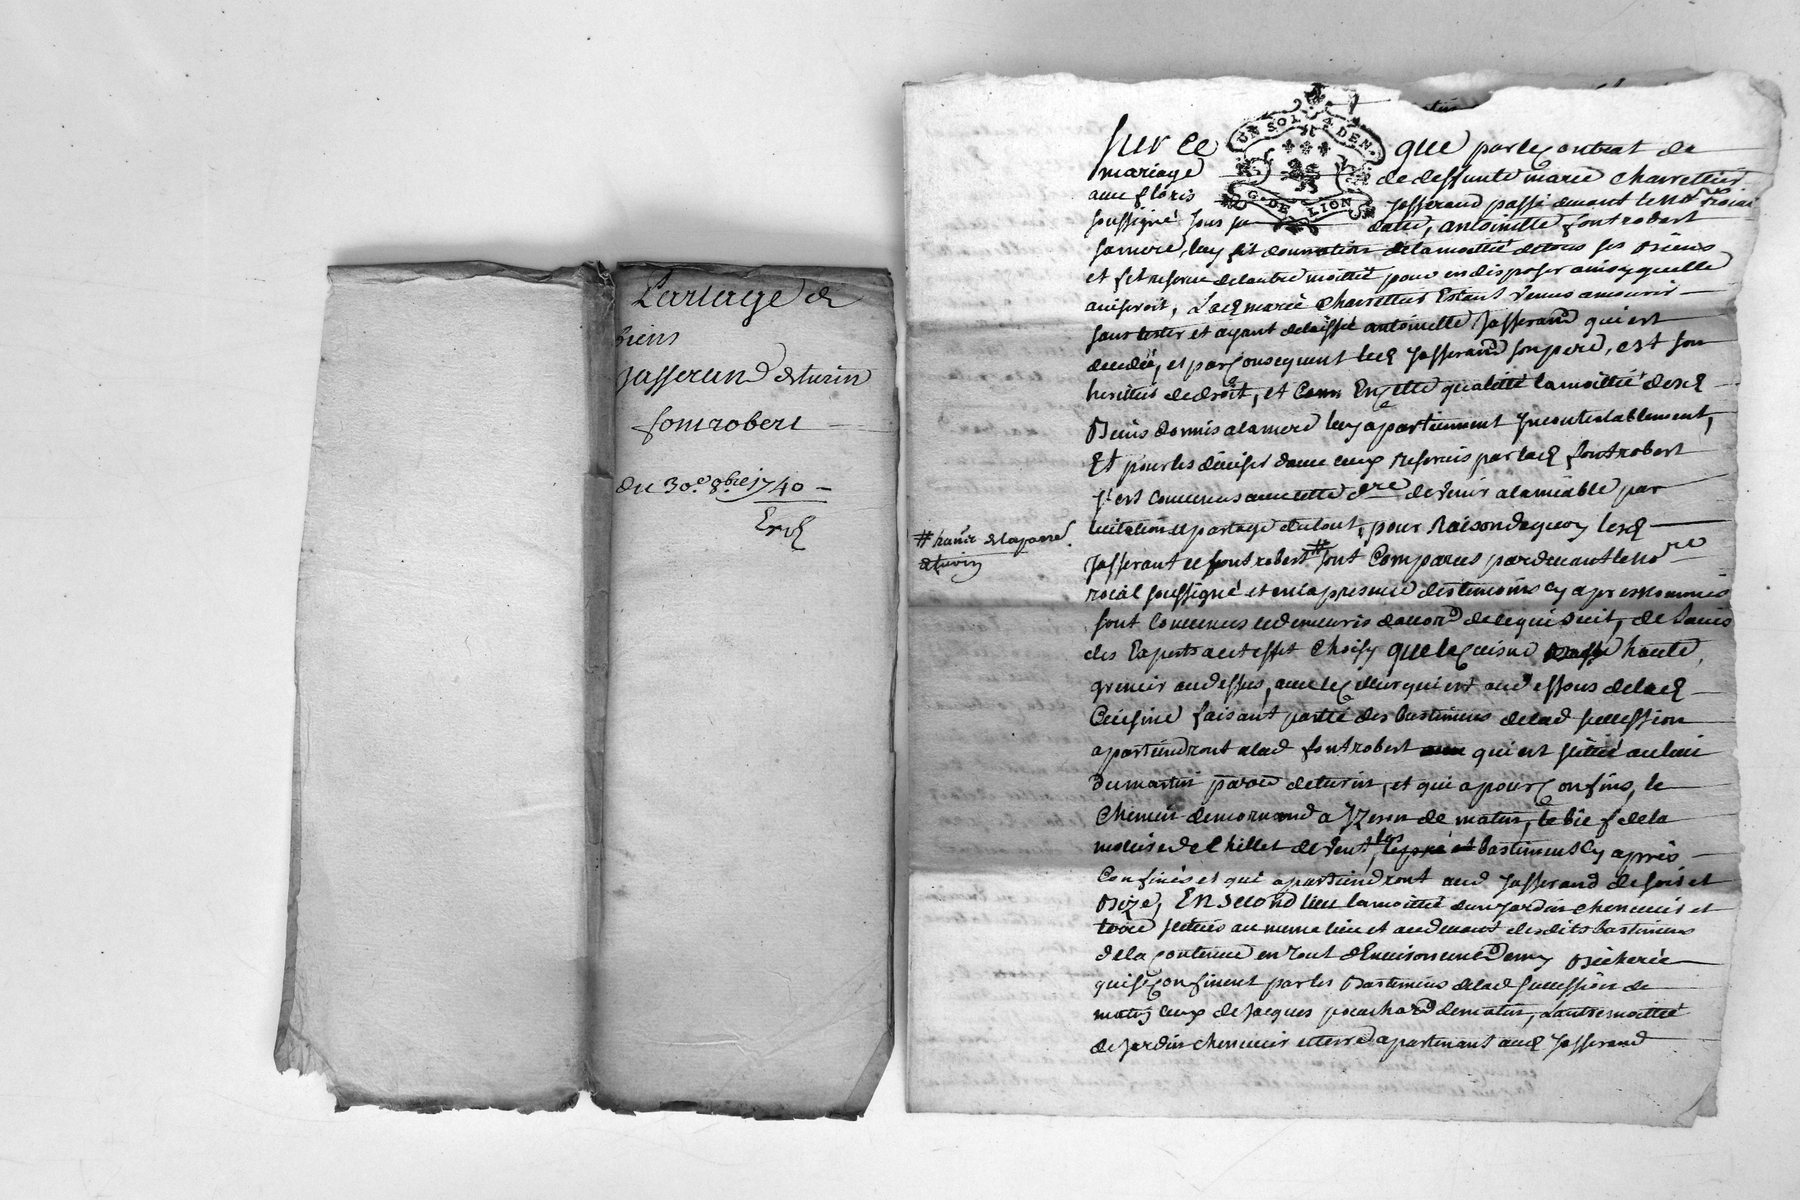 Partage de
biens
Jasserand et turin
fontrobert
du 30.e 8.bre 1740
Exp
UN SOL 4 DEN.
G. DE LION
Sur ce que par le contrat de
mariage de deffunte marie Charretier
avec floris Jasserand passé devant le no.re roial
soussigné sous sa datte, antoinette fontrobert
sa mere, luy fit donnation de la moitié de tous ses Biens
et fit reserve de lautre moitié pour en disposer ainsy quelle
aviseroit, Lad marie Charretier Estant venue a mourir
sans tester et ayant delaissé antoinette Jasserand qui est
decedée, et par Consequent led Jasserand son pere, est son
heritier de droit, et Comm En cette qualité la moitié desd
Biens donnés a la mere luy apartiennent Incontestablement,
Et pour les diviser davec ceux reservés par lad fontrobert
Il est convenus avec cette d.re de venir alamiable par
licitation et partage du tout, pour Raison de quoy lesd
Jasserant et fontrobert # sont Comparus pardevant le no.re
# turin
roial soussigné et en la presence des temoins cy apres nommés
sont Convenus et demeurés daccord de ce qui suit, de Lavis
des Experts a cet effet Choisy que la Cuisine haute,
grenier au dessus, avec le Cellier qui est au dessous de lad
Cuisine faisant partie des bastimens de lad succession
apartiendront a lad fontrobert qui est scitué au lieu
du martin paroisse de turins, et qui a pour Confins, le
Chemin de mornand a Yzeron de matin, le bief de la
de vent, les bastiment cy après
Confinés et qui apartiendront aud Jasserand de soir et
Bize, En second lieu la moitié dun jardin chenevier et
terre scitués au meme lieu et au devant desdits bastimens
de la contenue en tout dEnviron une Demy Bicherée
qui se Confinent par les Bastimens de lad succession de
matin, ceux de Jacques de matin, Lautre moitié
de jardin chenevier et terre apartenant aud Jasserand